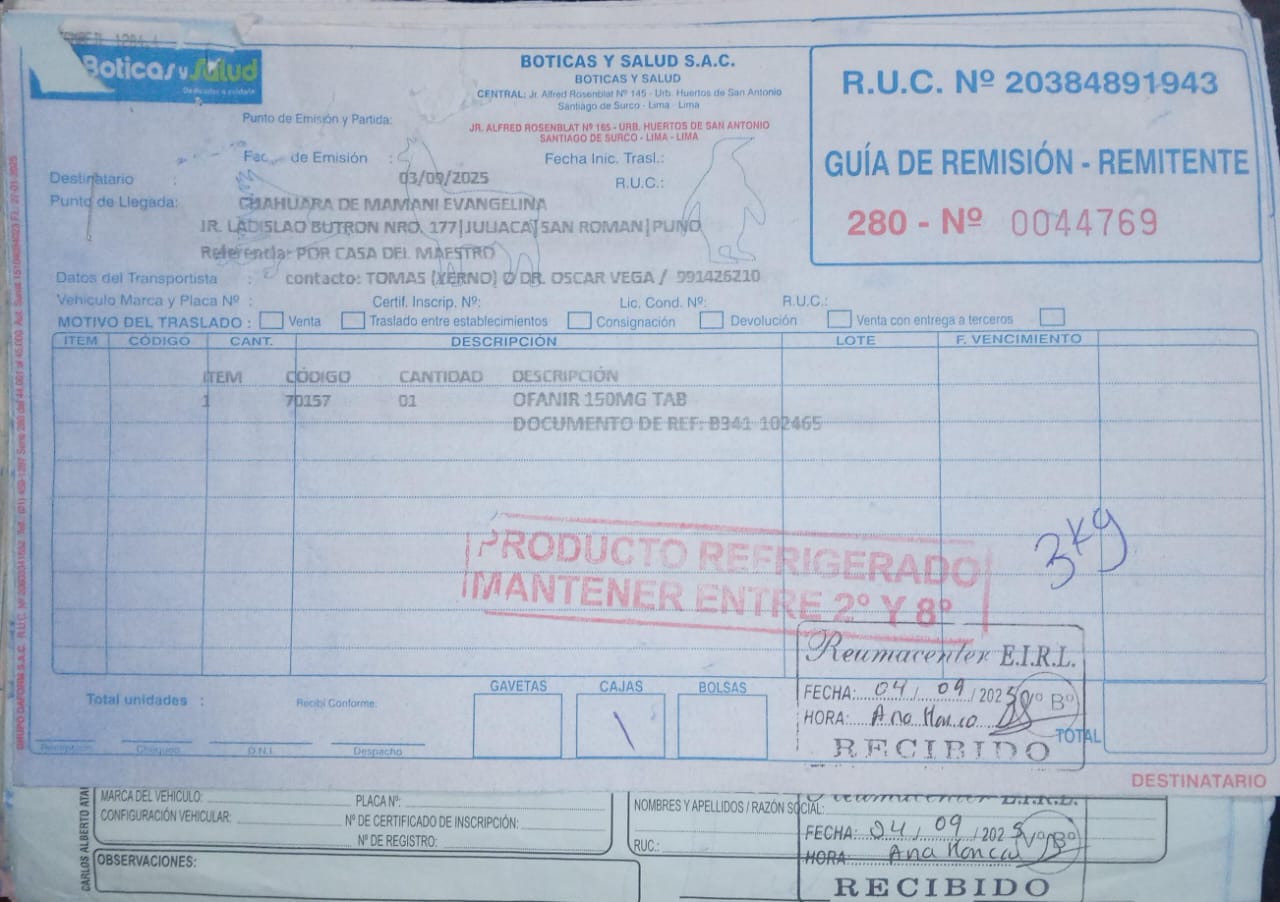 Boticas y Salud
Dedicados a cuidarte
BOTICAS Y SALUD S.A.C.
BOTICAS Y SALUD
CENTRAL: Jr. Alfred Rosenblat Nº 145 - Urb. Huertos de San Antonio
Santiago de Surco - Lima - Lima
Punto de Emisión y Partida:
JR. ALFRED ROSENBLAT Nº 165 - URB. HUERTOS DE SAN ANTONIO
SANTIAGO DE SURCO - LIMA - LIMA
R.U.C. Nº 20384891943
GUÍA DE REMISIÓN - REMITENTE
280 - Nº 0044769
de Emisión :
Fecha Inic. Trasl.:
Destinatario :
03/09/2025
R.U.C.:
Punto de Llegada:
CHAHUARA DE MAMANI EVANGELINA
JR. LADISLAO BUTRON NRO. 177|JULIACA|SAN ROMAN|PUNO
Referencia: POR CASA DEL MAESTRO
Datos del Transportista :
contacto: TOMAS (YERNO) O DR. OSCAR VEGA / 991426210
Vehículo Marca y Placa Nº : Certif. Inscrip. Nº: Lic. Cond. Nº: R.U.C.:
MOTIVO DEL TRASLADO : Venta Traslado entre establecimientos Consignación Devolución Venta con entrega a terceros
ITEM CÓDIGO CANT. DESCRIPCIÓN LOTE F. VENCIMIENTO
ITEM CÓDIGO CANTIDAD DESCRIPCIÓN
1 70157 01 OFANIR 150MG TAB
DOCUMENTO DE REF: B341 102465
3kg
PRODUCTO REFRIGERADO
MANTENER ENTRE 2º Y 8º
Reumacenter E.I.R.L.
FECHA: 04 / 09 / 2025 Vº Bº
HORA: Ana
RECIBIDO
Total unidades :
Recibí Conforme:
GAVETAS CAJAS BOLSAS
TOTAL
Recepción Chequeo D.N.I. Despacho
DESTINATARIO
MARCA DEL VEHICULO:
PLACA Nº:
CONFIGURACIÓN VEHICULAR:
Nº DE CERTIFICADO DE INSCRIPCIÓN:
Nº DE REGISTRO:
OBSERVACIONES:
NOMBRES Y APELLIDOS / RAZÓN SOCIAL:
RUC.:
Reumacenter E.I.R.L.
FECHA: 04 / 09 / 2025 Vº Bº
HORA: Ana
RECIBIDO
CARLOS ALBERTO